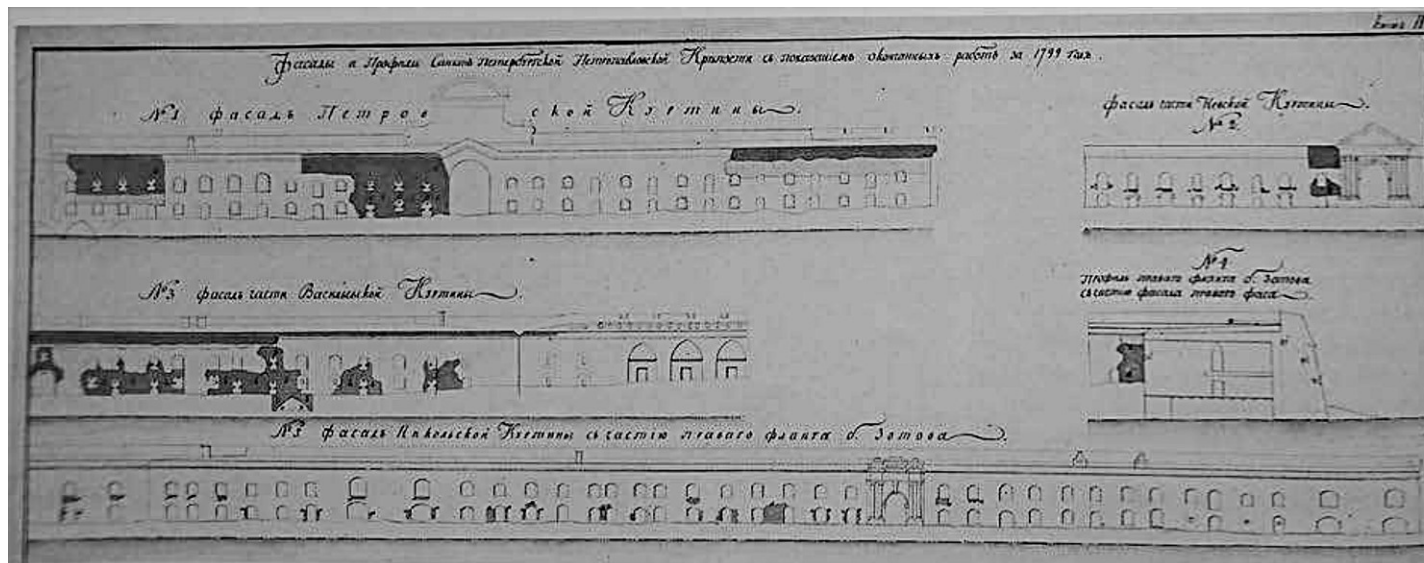 Фасады и Профили Санктъ петербургской Петропавловской Крѣпости съ показанiемъ оконченныхъ работъ за 1799 годъ.
№1 фасадъ Петровской Куртины.
фасадъ части Невской Куртины
№2
№3 фасадъ части Васильевской Куртины.
№4
профиль праваго фланга б. Зотова
съ частiю фасада праваго фаса
№5 фасадъ Никольской Куртины съ частiю праваго фланга б. Зотова.